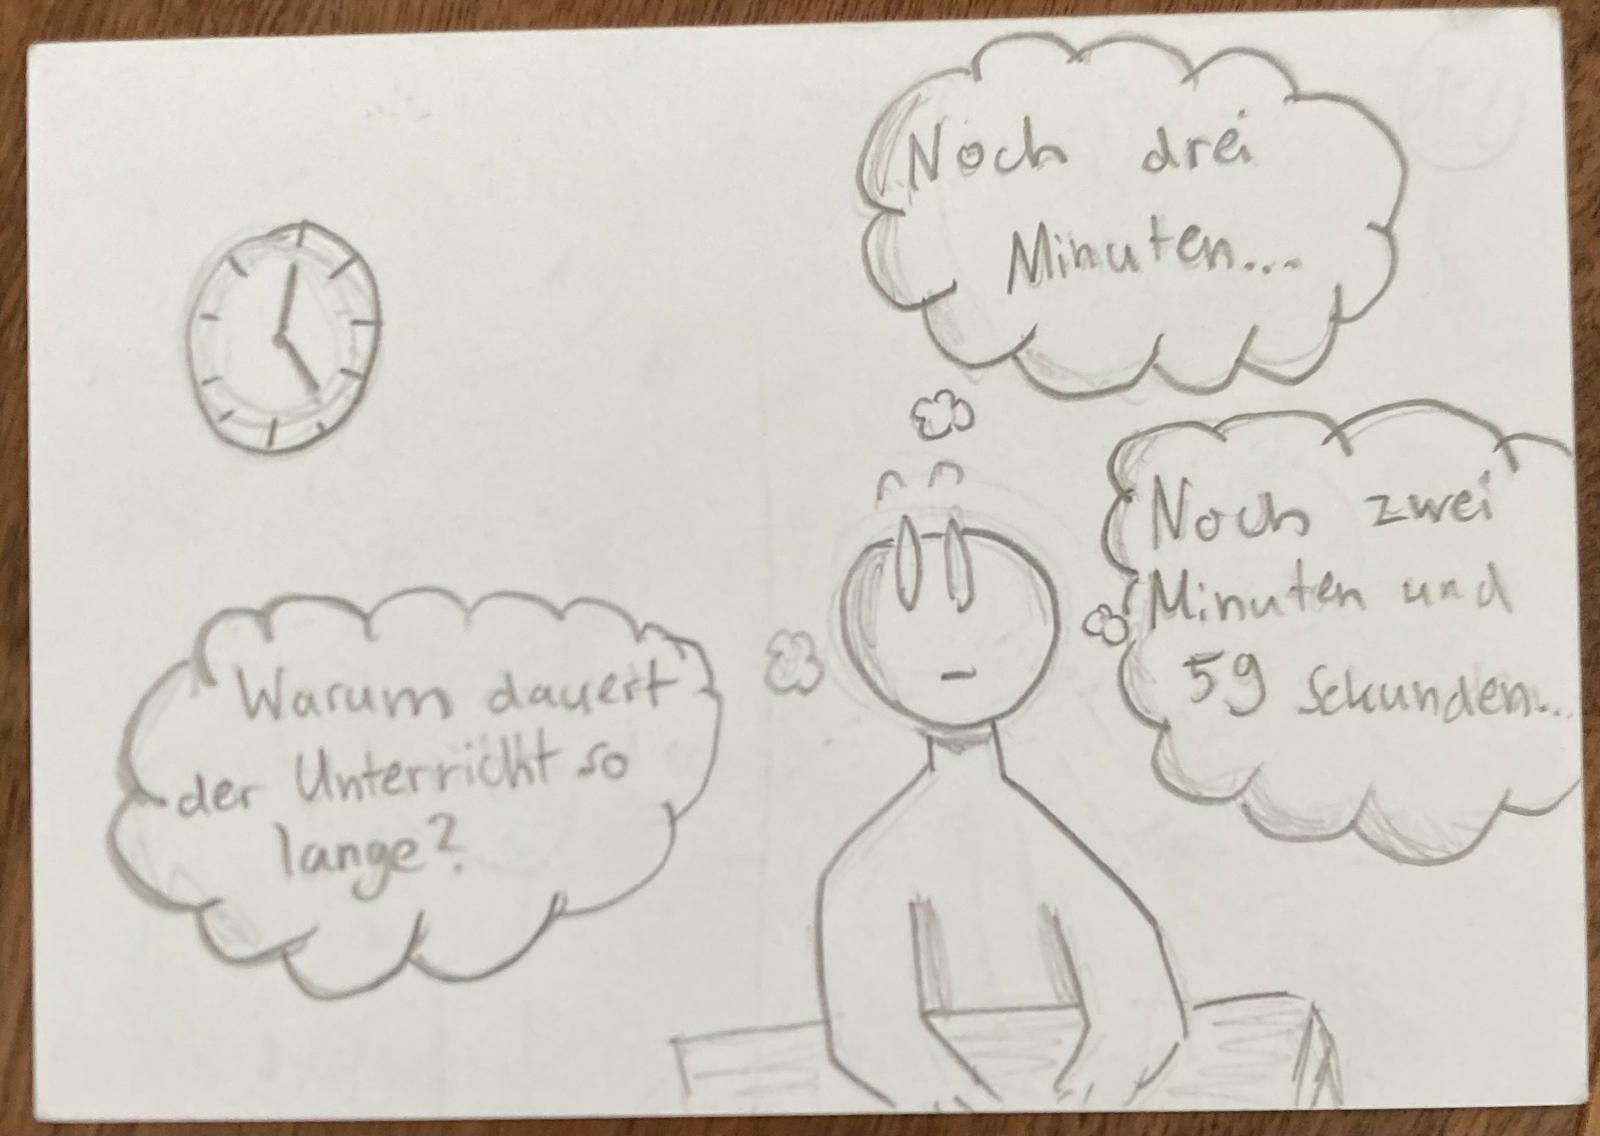 Noch drei
Minuten...
Noch zwei
Minuten und
59 Sekunden...
Warum dauert
der Unterricht so
lange?